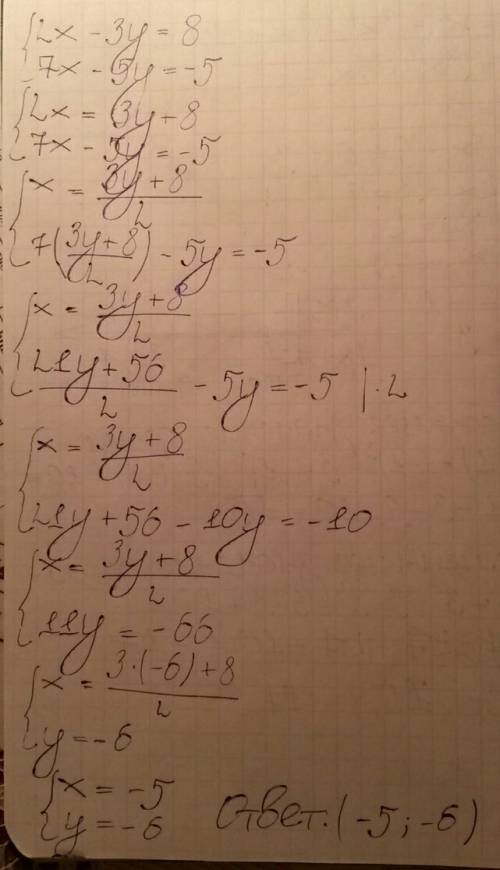 2x - 3y = 8
7x - 5y = -5
2x = 3y + 8
7x - 5y = -5
x = (3y + 8)/2
7((3y + 8)/2) - 5y = -5
x = (3y + 8)/2
(21y + 56)/2 - 5y = -5 | · 2
x = (3y + 8)/2
21y + 56 - 10y = -10
x = (3y + 8)/2
11y = -66
x = (3·(-6) + 8)/2
y = -6
x = -5
y = -6 Ответ. (-5; -6)